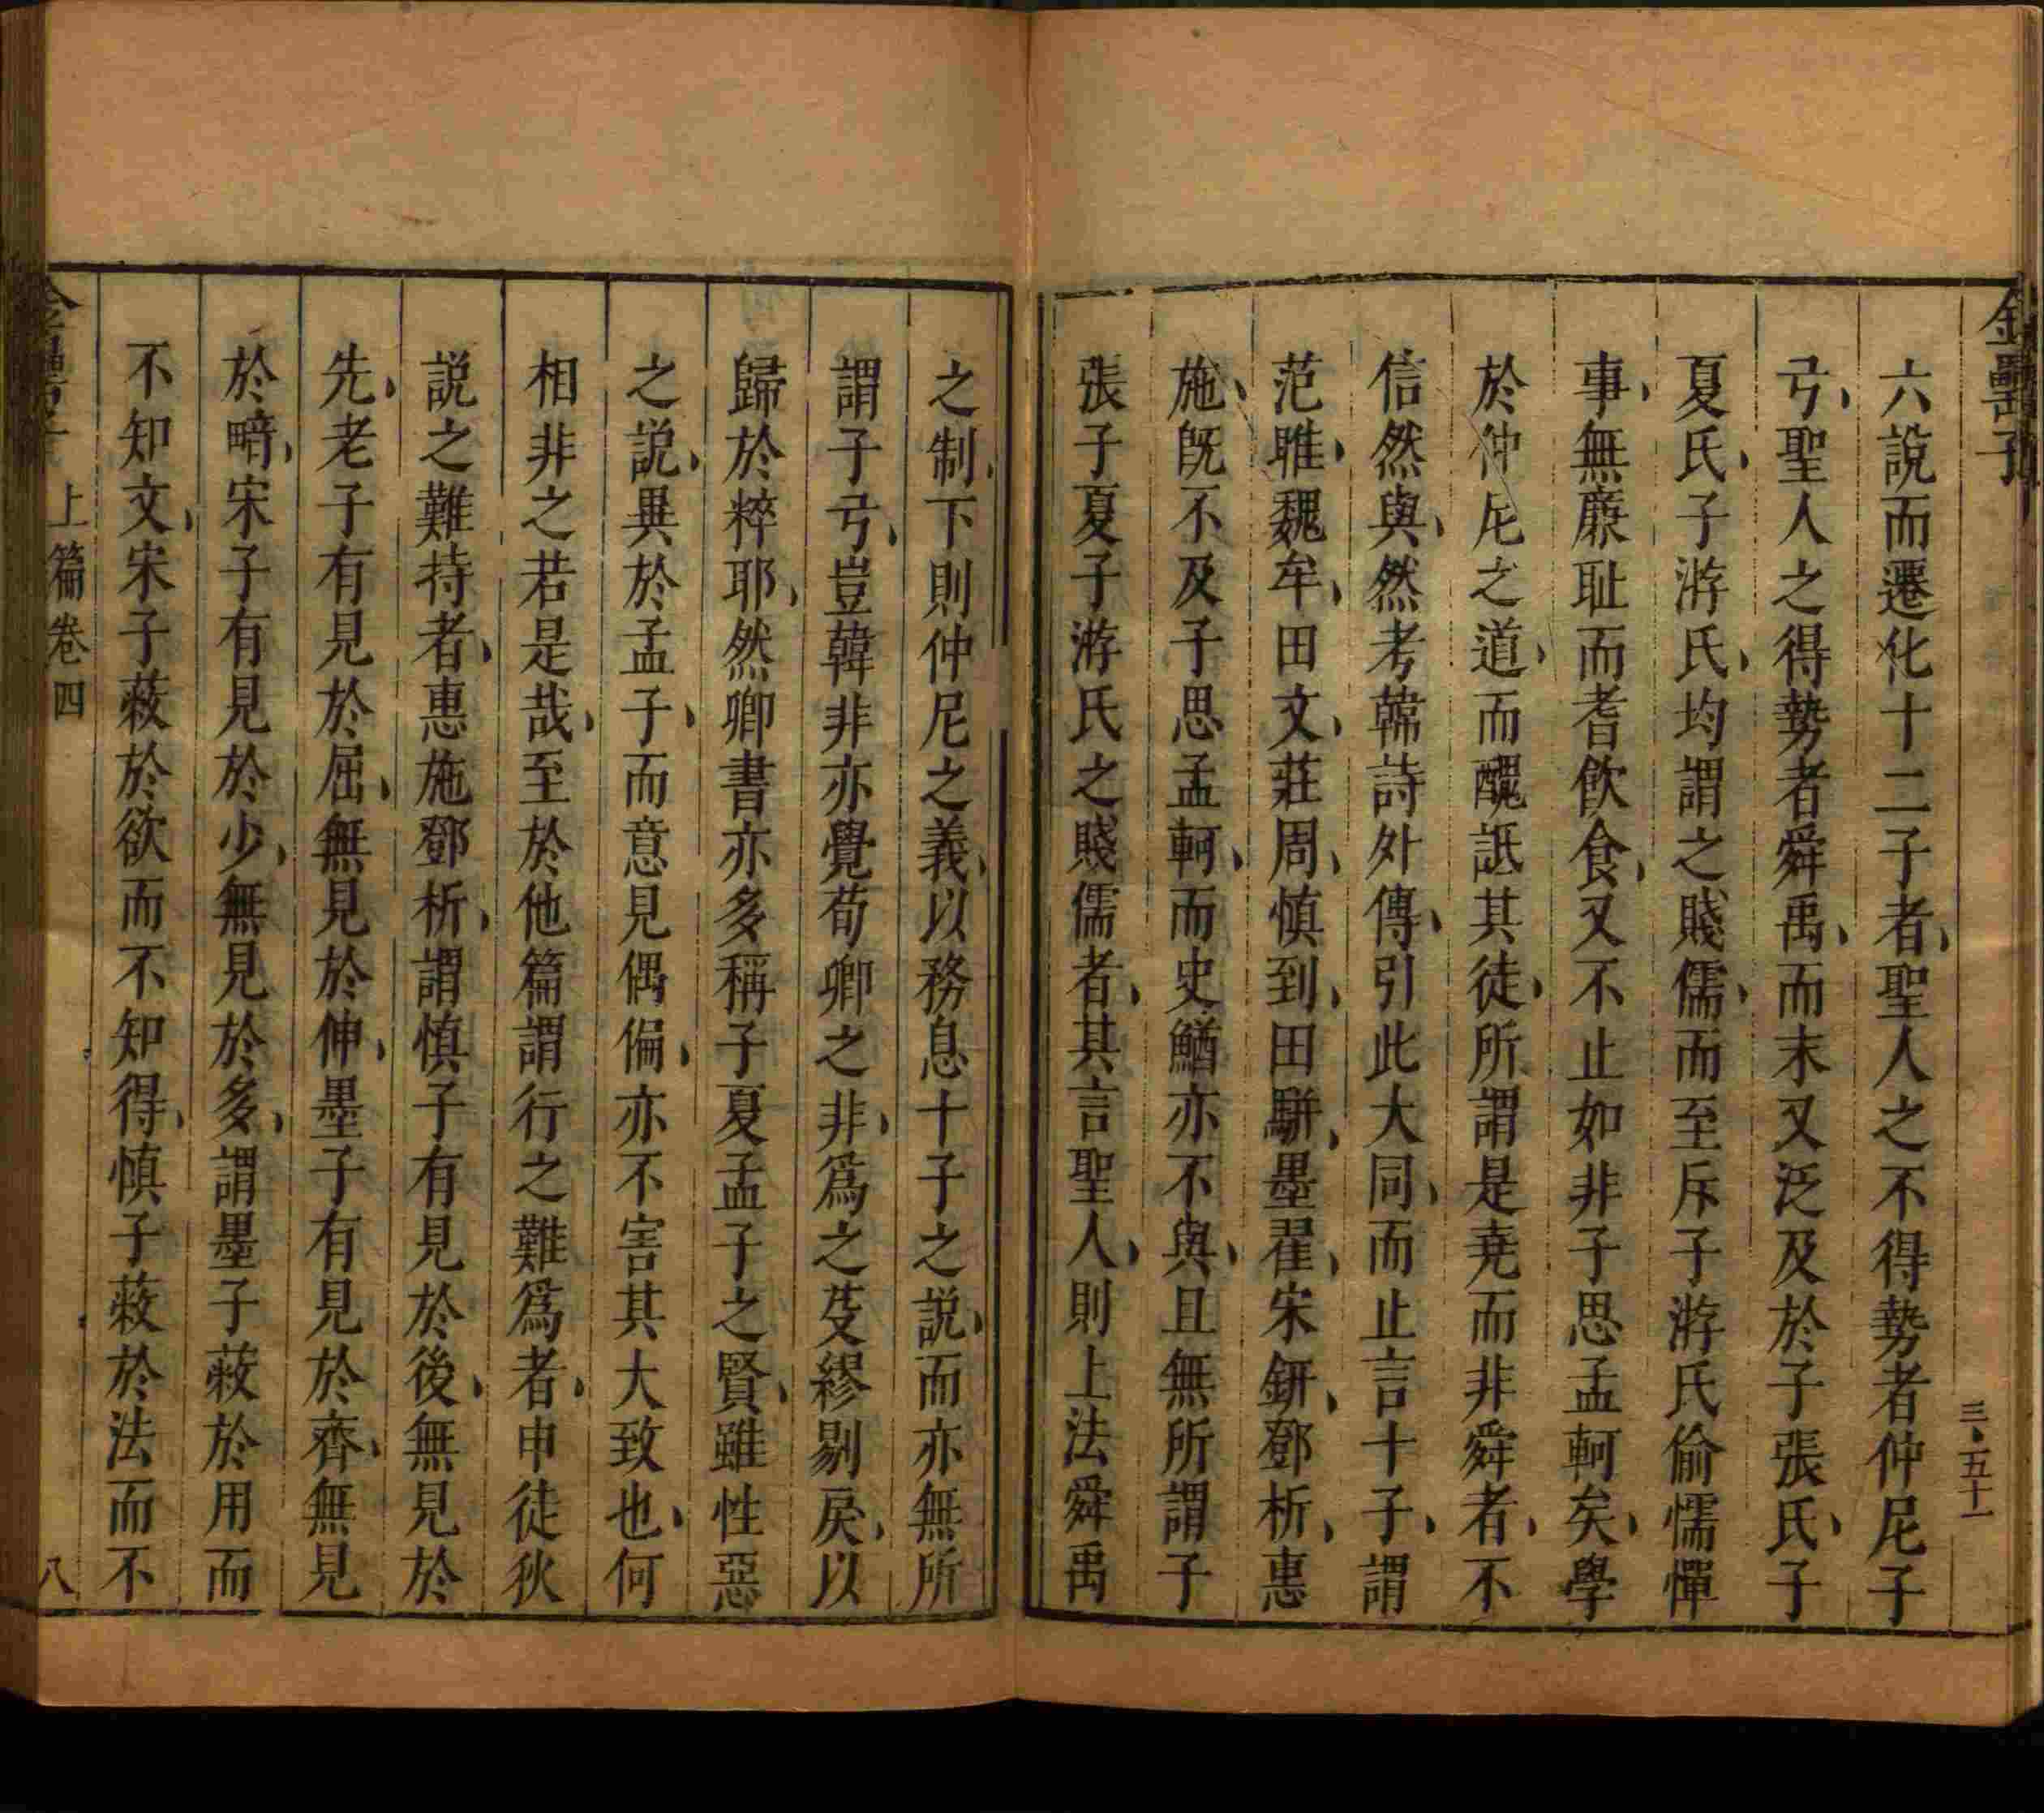 金罍子
三、五十一
六說而遷化十二子者、聖人之不得勢者仲尼子
弓、聖人之得勢者舜禹、而末又泛及於子張氏、子
夏氏、子游氏、均謂之賤儒、而至斥子游氏偷懦憚
事、無廉耻而耆飲食、又不止如非子思孟軻矣、學
於仲尼之道、而醜詆其徒、所謂是堯而非舜者、不
信然與、然考韓詩外傳、引此大同、而止言十子、謂
范雎、魏牟、田文、莊周、慎到、田駢、墨翟、宋鈃、鄧析、惠
施、旣不及子思孟軻、而史鰌亦不與、且無所謂子
張子夏子游氏之賤儒者、其言聖人、則上法舜禹
之制、下則仲尼之義、以務息十子之說、而亦無所
謂子弓、豈韓非亦覺荀卿之非、爲之芟繆剔戾、以
歸於粹耶、然卿書亦多稱子夏孟子之賢、雖性惡
之說、異於孟子、而意見偶偏、亦不害其大致也、何
相非之若是哉、至於他篇謂行之難爲者、申徒狄
說之難持者、惠施鄧析、謂慎子有見於後、無見於
先、老子有見於屈、無見於伸、墨子有見於齊、無見
於畸、宋子有見於少、無見於多、謂墨子蔽於用而
不知文、宋子蔽於欲而不知得、慎子蔽於法而不
金罍子 上篇卷四 八